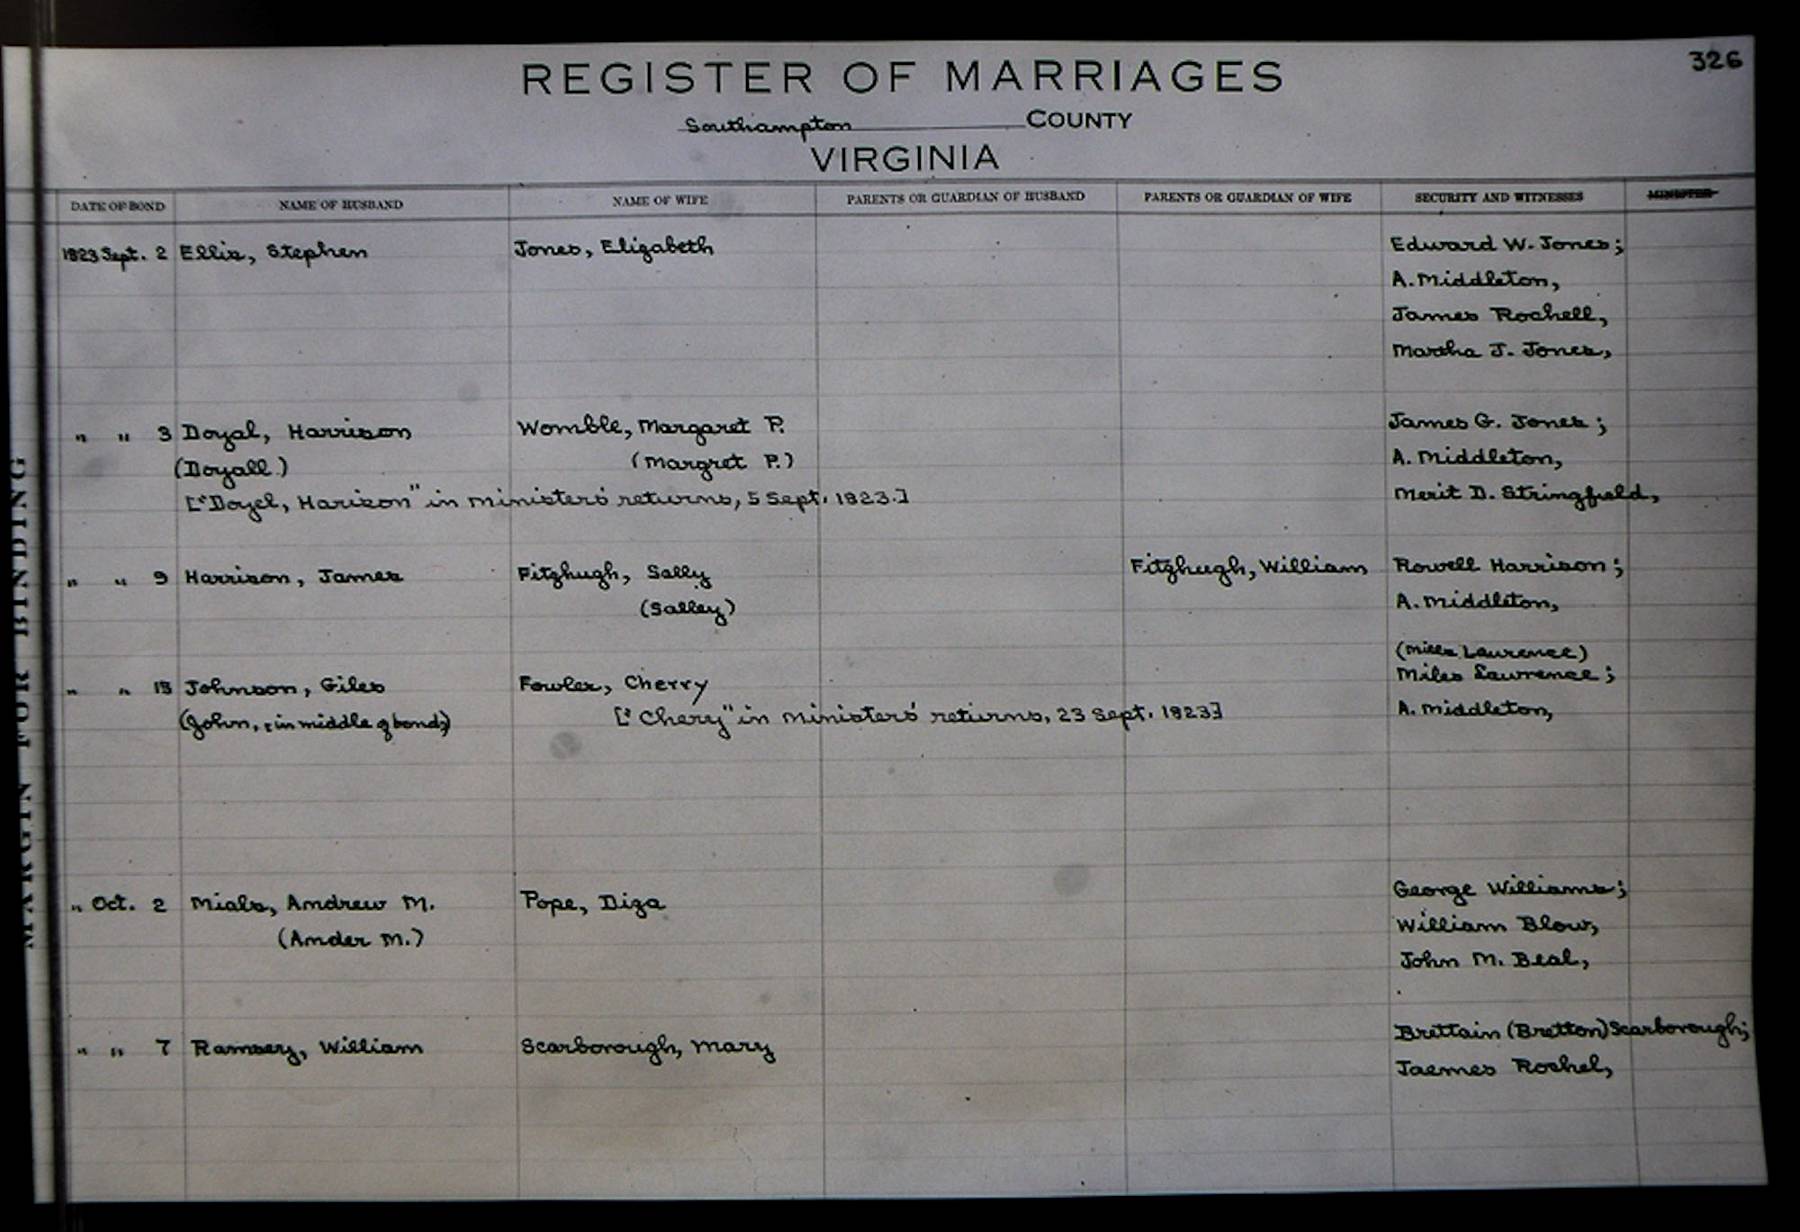 326
REGISTER OF MARRIAGES
Southampton COUNTY
VIRGINIA
DATE OF BOND NAME OF HUSBAND NAME OF WIFE PARENTS OR GUARDIAN OF HUSBAND PARENTS OR GUARDIAN OF WIFE SECURITY AND WITNESSES MINISTER
1823 Sept. 2 Ellis, Stephen Jones, Elizabeth Edward W. Jones;
A. Middleton,
James Rochell,
Martha J. Jones,
" " 3 Doyal, Harrison Womble, Margaret P. James G. Jones;
(Doyall) (Margret P.) A. Middleton,
["Doyel, Harison" in ministers' returns, 5 Sept. 1823.] Merit D. Stringfield,
" " 9 Harrison, James Fitzhugh, Sally Fitzhugh, William Rowell Harrison;
(Salley) A. Middleton,
(Mills Laurence)
" " 15 Johnson, Giles Fowler, Cherry Miles Lawrence;
(John, in middle of bond;) ["Chery" in ministers' returns, 23 Sept. 1823] A. Middleton,
" Oct. 2 Mials, Andrew M. Pope, Diza George Williams;
(Ander M.) William Blow,
John M. Beal,
" " 7 Ramsey, William Scarborough, Mary Brittain (Bretton) Scarborough;
Jaemes Rochel,
MARGIN FOR BINDING